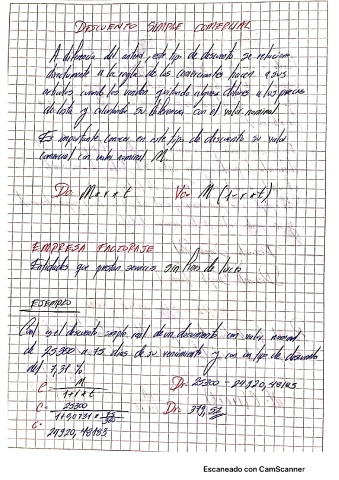 DESCUENTO SIMPLE COMERCIAL
A diferencia del anterior, este tipo de descuento se relaciona
directamente a la regla de los comerciantes hacen a sus
artículos cuando los venden quitando algunos dólares a los precios
de lista y calculando su diferencia con el valor nominal
Es importante conocer en este tipo de descuento su valor
comercial con valor nominal M.
Dc= M*r*t Vc= M(1-r*t)
EMPRESA FACTORAJE
Entidades que prestan servicios sin fines de lucro
EJEMPLO
Cual es el descuento simple real de un documento con valor nominal
de 25300 a 75 días de su vencimiento y con un tipo de descuento
del 7,31 %
C= M / 1+r*t Dr= 25300 - 24920,48183
C= 25300 / 1+0,0731* 75/360 Dr= 379,52
C= 24920,48183
Escaneado con CamScanner